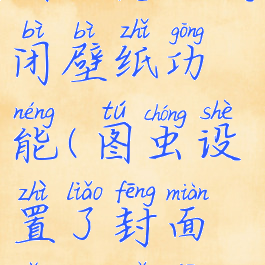 bì bì zhǐ gōng
闭壁纸功
néng tú chóng shè
能(图虫设
zhì liǎo fēng miàn
置了封面